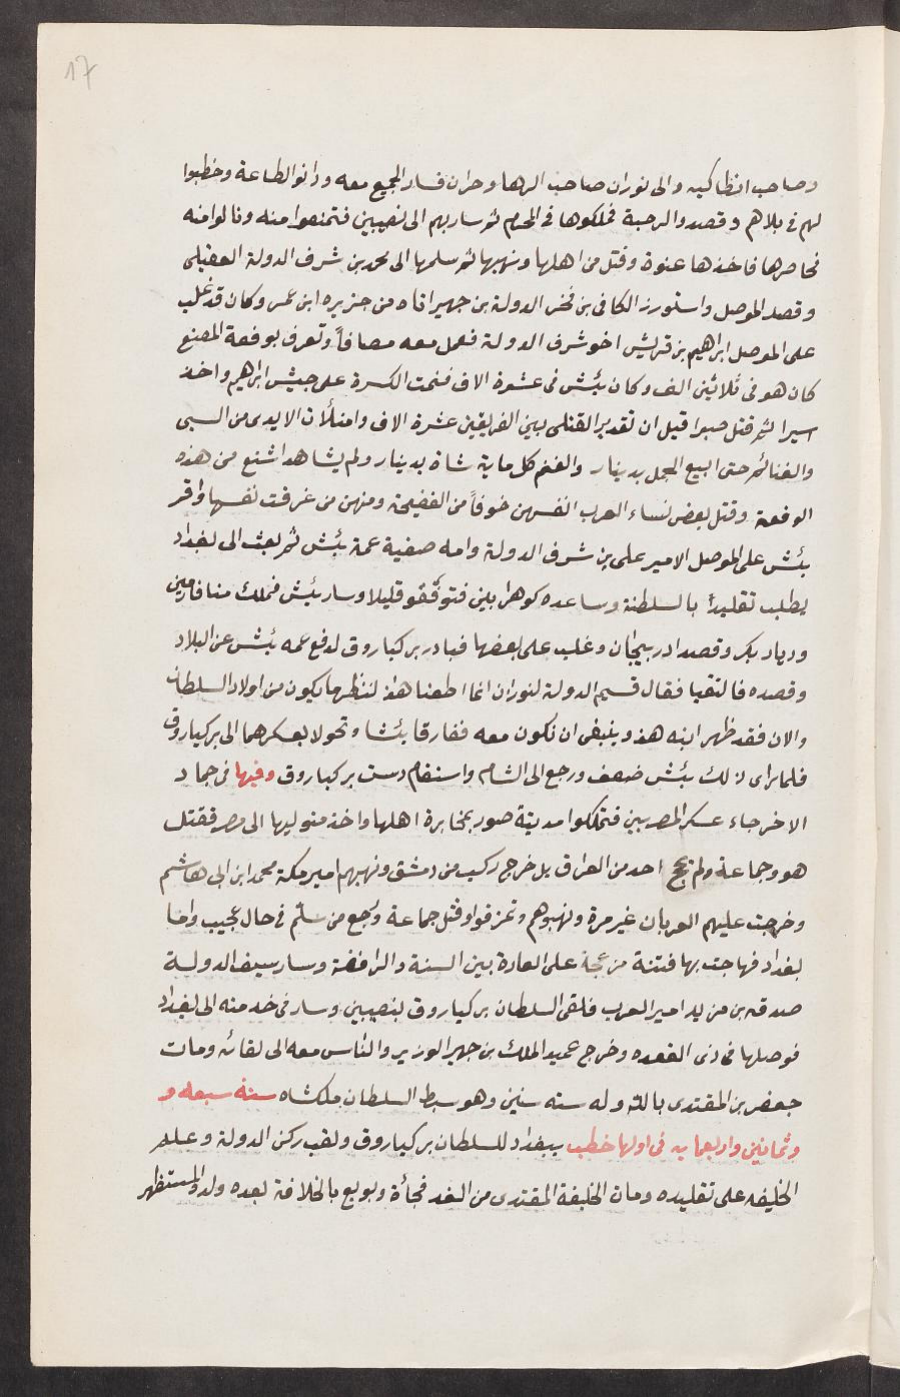 17
وصاحب انطاكيه والى نوران صاحب الرها وحران فسار الجميع معه ودانوا لطاعة وخطبوا
لهم فى بلاهم وقصدوا الرحبة فملكوها فى المحرم ثم سار بهم الى نصيبين فتمنعوا منه ونالوا منه
فحاصرها فاخذها عنوة وقتل من اهلها ونهبها ثم سلمها الى محمد بن شرف الدولة العقيلى
وقصد الموصل واستوزر الكافى بن فخر الدولة بن جهير اتاه من جزيره ابن عمر وكان قد غلب
على الموصل ابراهيم بن قريش اخو شرف الدولة فعمل معه مصافاً وتعرف بوقعة المصنع
كان هو فى ثلاثين الف وكان بتش فى عشرة الاف فتمت الكسرة على جيش ابراهيم واخذ
اسيرا ثم قتل صبرا قيل ان تقدير القتلى بين الفريقين عشرة الاف وامتلأت الايدى من السبى
والغنائم حتى ابيع الجمل بدينار والغنم كل ماية شاة بدينار ولم يشاهد اشنع من هذه
الوقعة وقتل بعض نساء العرب انفسهن خوفاً من الفضيحة ومنهن من غرقت نفسها واقر
بتش على الموصل الامير على بن شرف الدولة وامه صفية عمة بتش ثم بعث الى بغداد
يطلب تقليداً بالسلطنة وساعده كوهرايين فتوقفو قليلا وسار بتش فملك منافارمين
وديار بكر وقصد ادربيجان وغلب على بعضها فبادر بركياروق لدفع عمه بتش عن البلاد
وقصده فالتقيا فقال قسيم الدولة لنوران انما اطعنا هذا لننظر ما يكون من اولاد السلطان
والان فقد ظهر ابنه هذو ينبغى ان نكون معه ففارقا بتشا وتحولا بعسكرهما الى بركياروق
فلما راى ذلك بتش ضعف ورجع الى الشام واستقام دست بركياروق وفيها فى جماد
الاخر جاء عسكر المصريين فتملكوا مدينة صور بمخابرة اهلها واخذ متوليها الى مصر فقتل
هو وجماعة ولم يحج احد من العراق بل خرج ركب من دمشق ونهبهم امير مكة محمد ابن ابى هاشم
وخرجت عليهم العربان غير مرة ونهبوهم وتمزقوا وقتل جماعة ورجع من سلم فى حال عجيب واما
بغداد فهاجت بها فتنة مزعجة على العادة بين السنة والرافضة وسار سيف الدولة
صدقه بن مزيد امير العرب فلقى السلطان بركياروق بنصيبين وسار فى خدمته الى بغداد
فوصلها فى ذى القعده وخرج عميد الملك بن جهير الوزير والناس معه الى لقائه ومات
جعفر بن المقتدى بالله وله سته سنين وهو سبط السلطان ملكشاه سنة سبعه و
وثمانين واربعمايه فى اولها خطب ببغداد للسلطان بركياروق ولقب ركن الدولة وعلم
الخليفه على تقليده ومات الخليفة المقتدى من الغد فجأة وبويع بالخلافة بعده ولده المستظهر